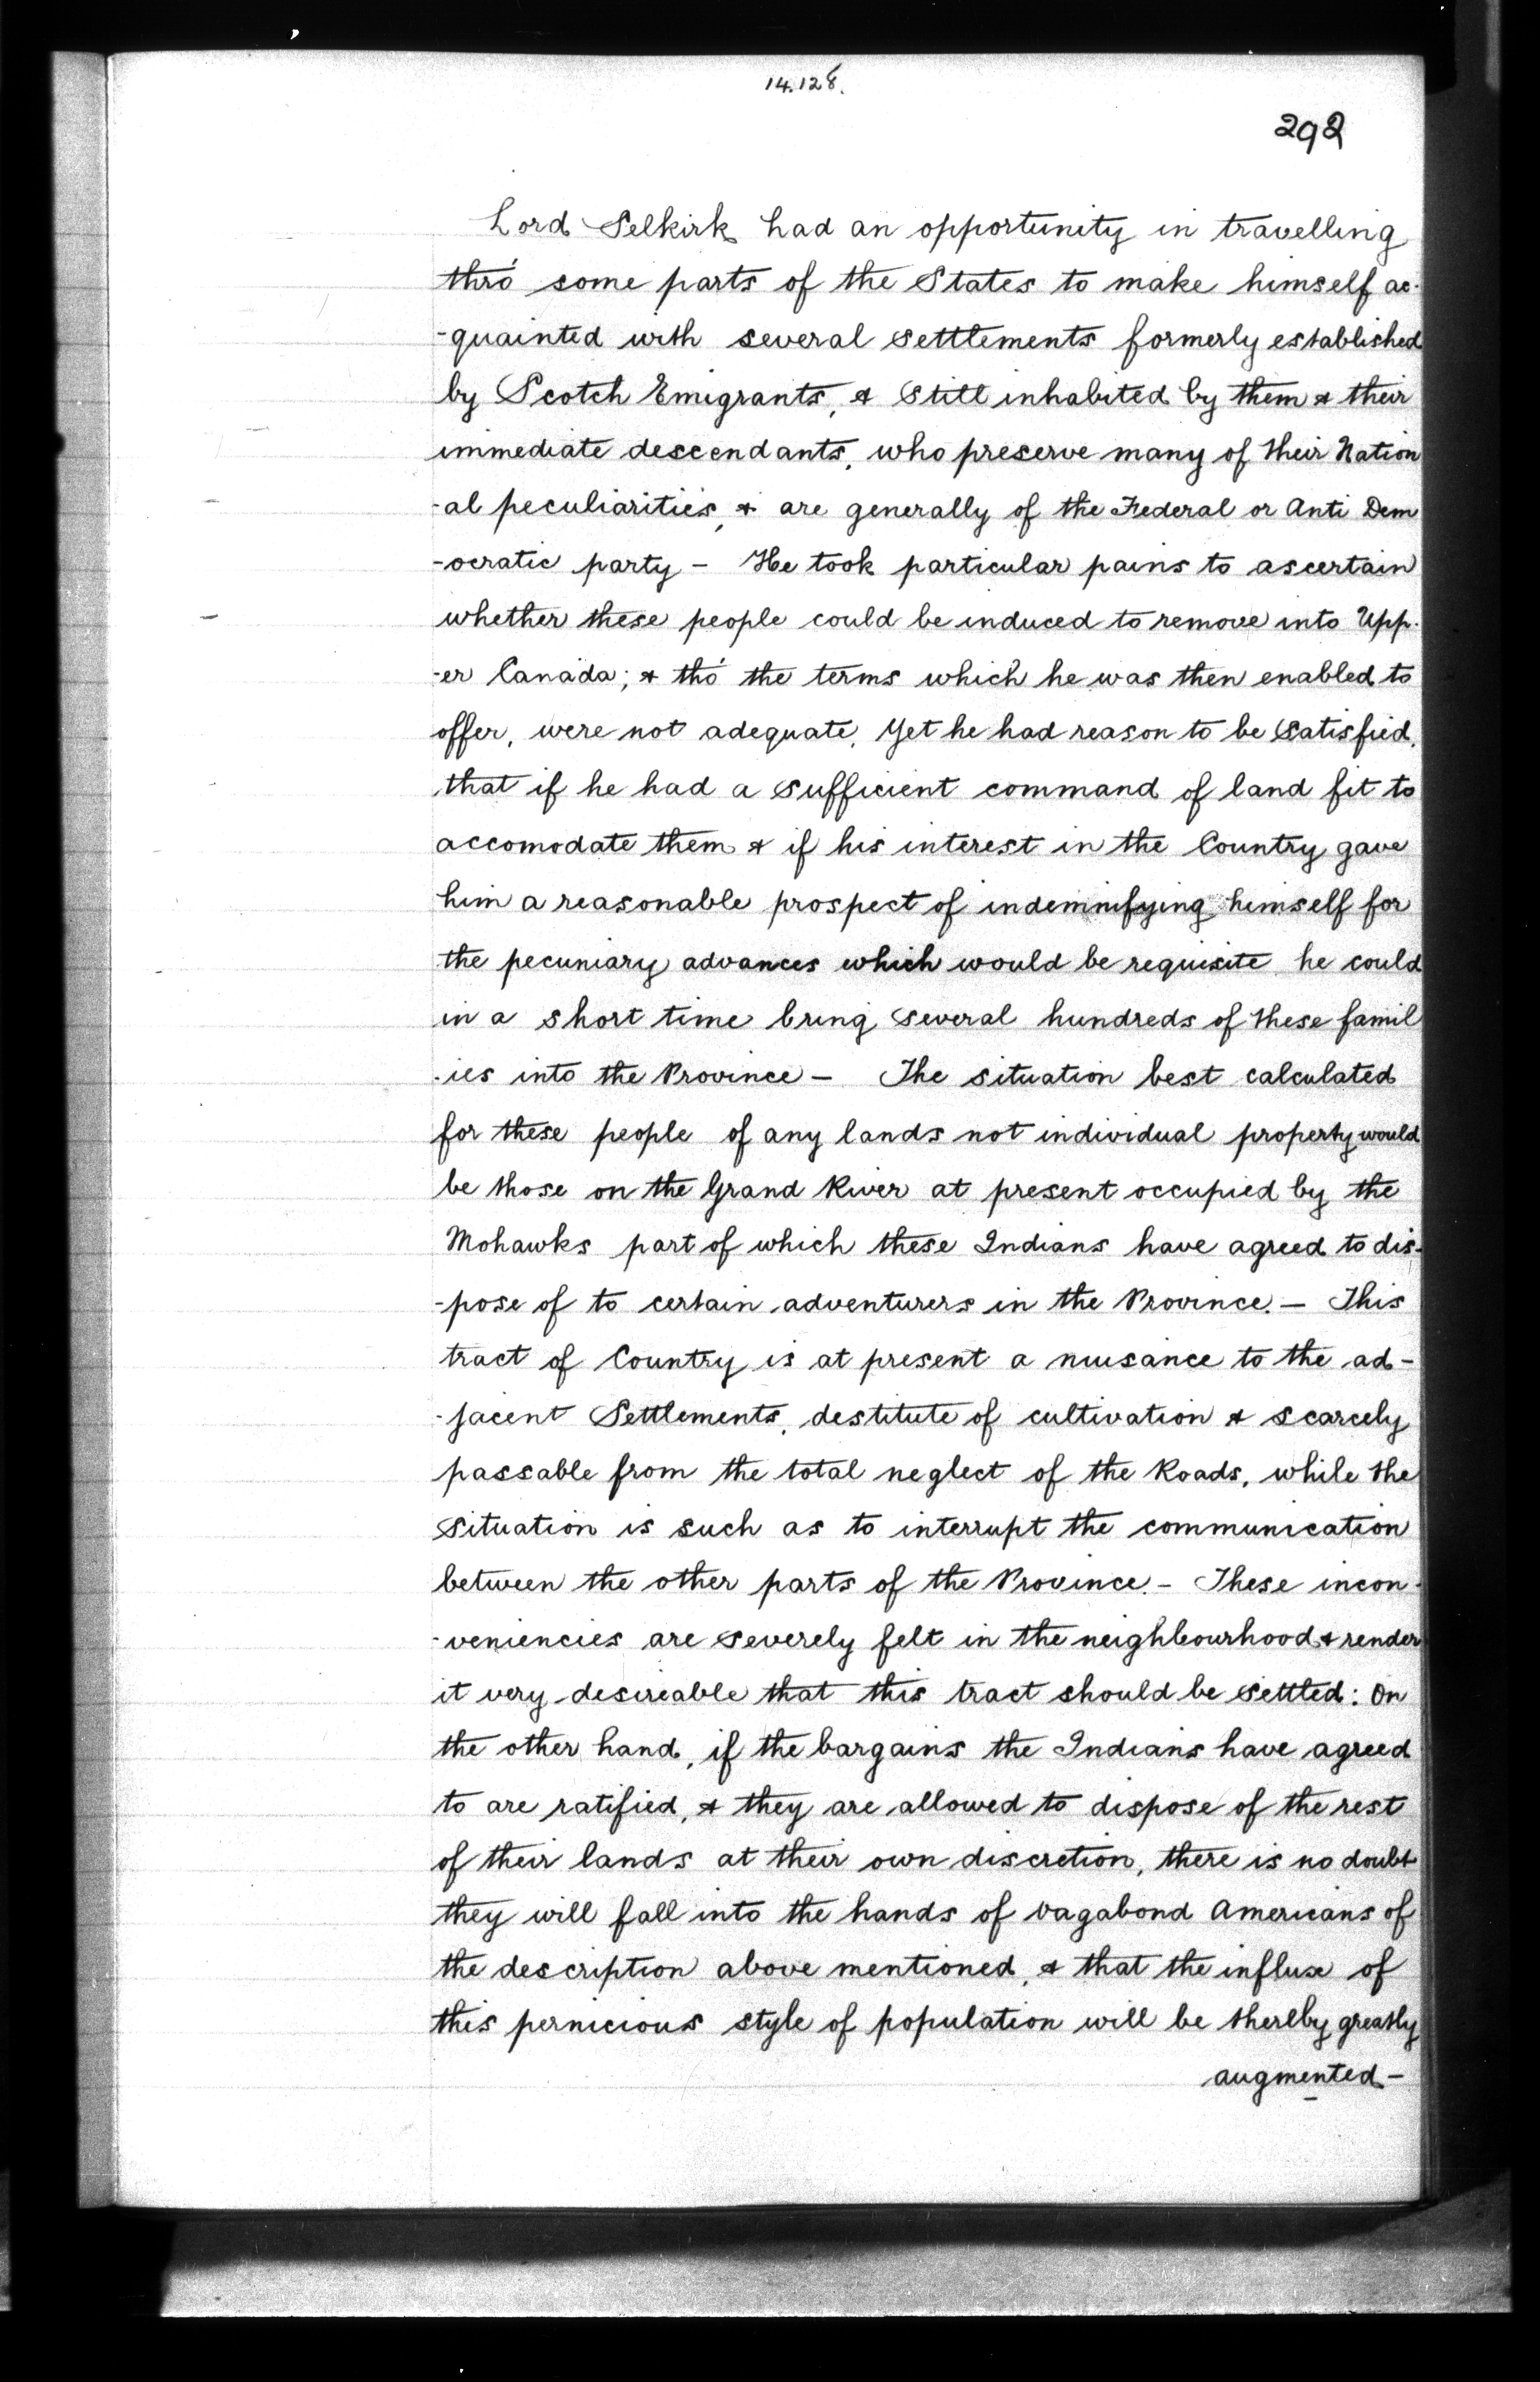 14.128.
292
Lord Selkirk had an opportunity in travelling
thro' some parts of the States to make himself ac-
-quainted with several settlements formerly established
by Scotch Emigrants, & still inhabited by them & their
immediate descendants, who preserve many of their Nation
-al peculiarities, & are generally of the Federal or Anti Dem
-ocratic party - He took particular pains to ascertain
whether these people could be induced to remove into Upp-
-er Canada; & tho' the terms which he was then enabled to
offer, were not adequate, Yet he had reason to be satisfied,
that if he had a sufficient command of land fit to
accomodate them & if his interest in the Country gave
him a reasonable prospect of indemnifying himself for
the pecuniary advances which would be requisite he could
in a short time bring several hundreds of these famil
-ies into the Province - The situation best calculated
for these people of any lands not individual property would
be those on the Grand River at present occupied by the
Mohawks part of which these Indians have agreed to dis-
-pose of to certain adventurers in the Province. - This
tract of Country is at present a nuisance to the ad-
-jacent Settlements, destitute of cultivation & scarcely
passable from the total neglect of the Roads, while the
situation is such as to interrupt the communication
between the other parts of the Province. - These incon-
-veniencies are severely felt in the neighbourhood & render
it very desireable that this tract should be settled: On
the other hand, if the bargains the Indians have agreed
to are ratified, & they are allowed to dispose of the rest
of their lands at their own discretion, there is no doubt
they will fall into the hands of vagabond Americans of
the description above mentioned, & that the influx of
this pernicious style of population will be thereby greatly
augmented -